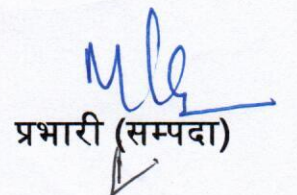 प्रभारी (सम्पदा)